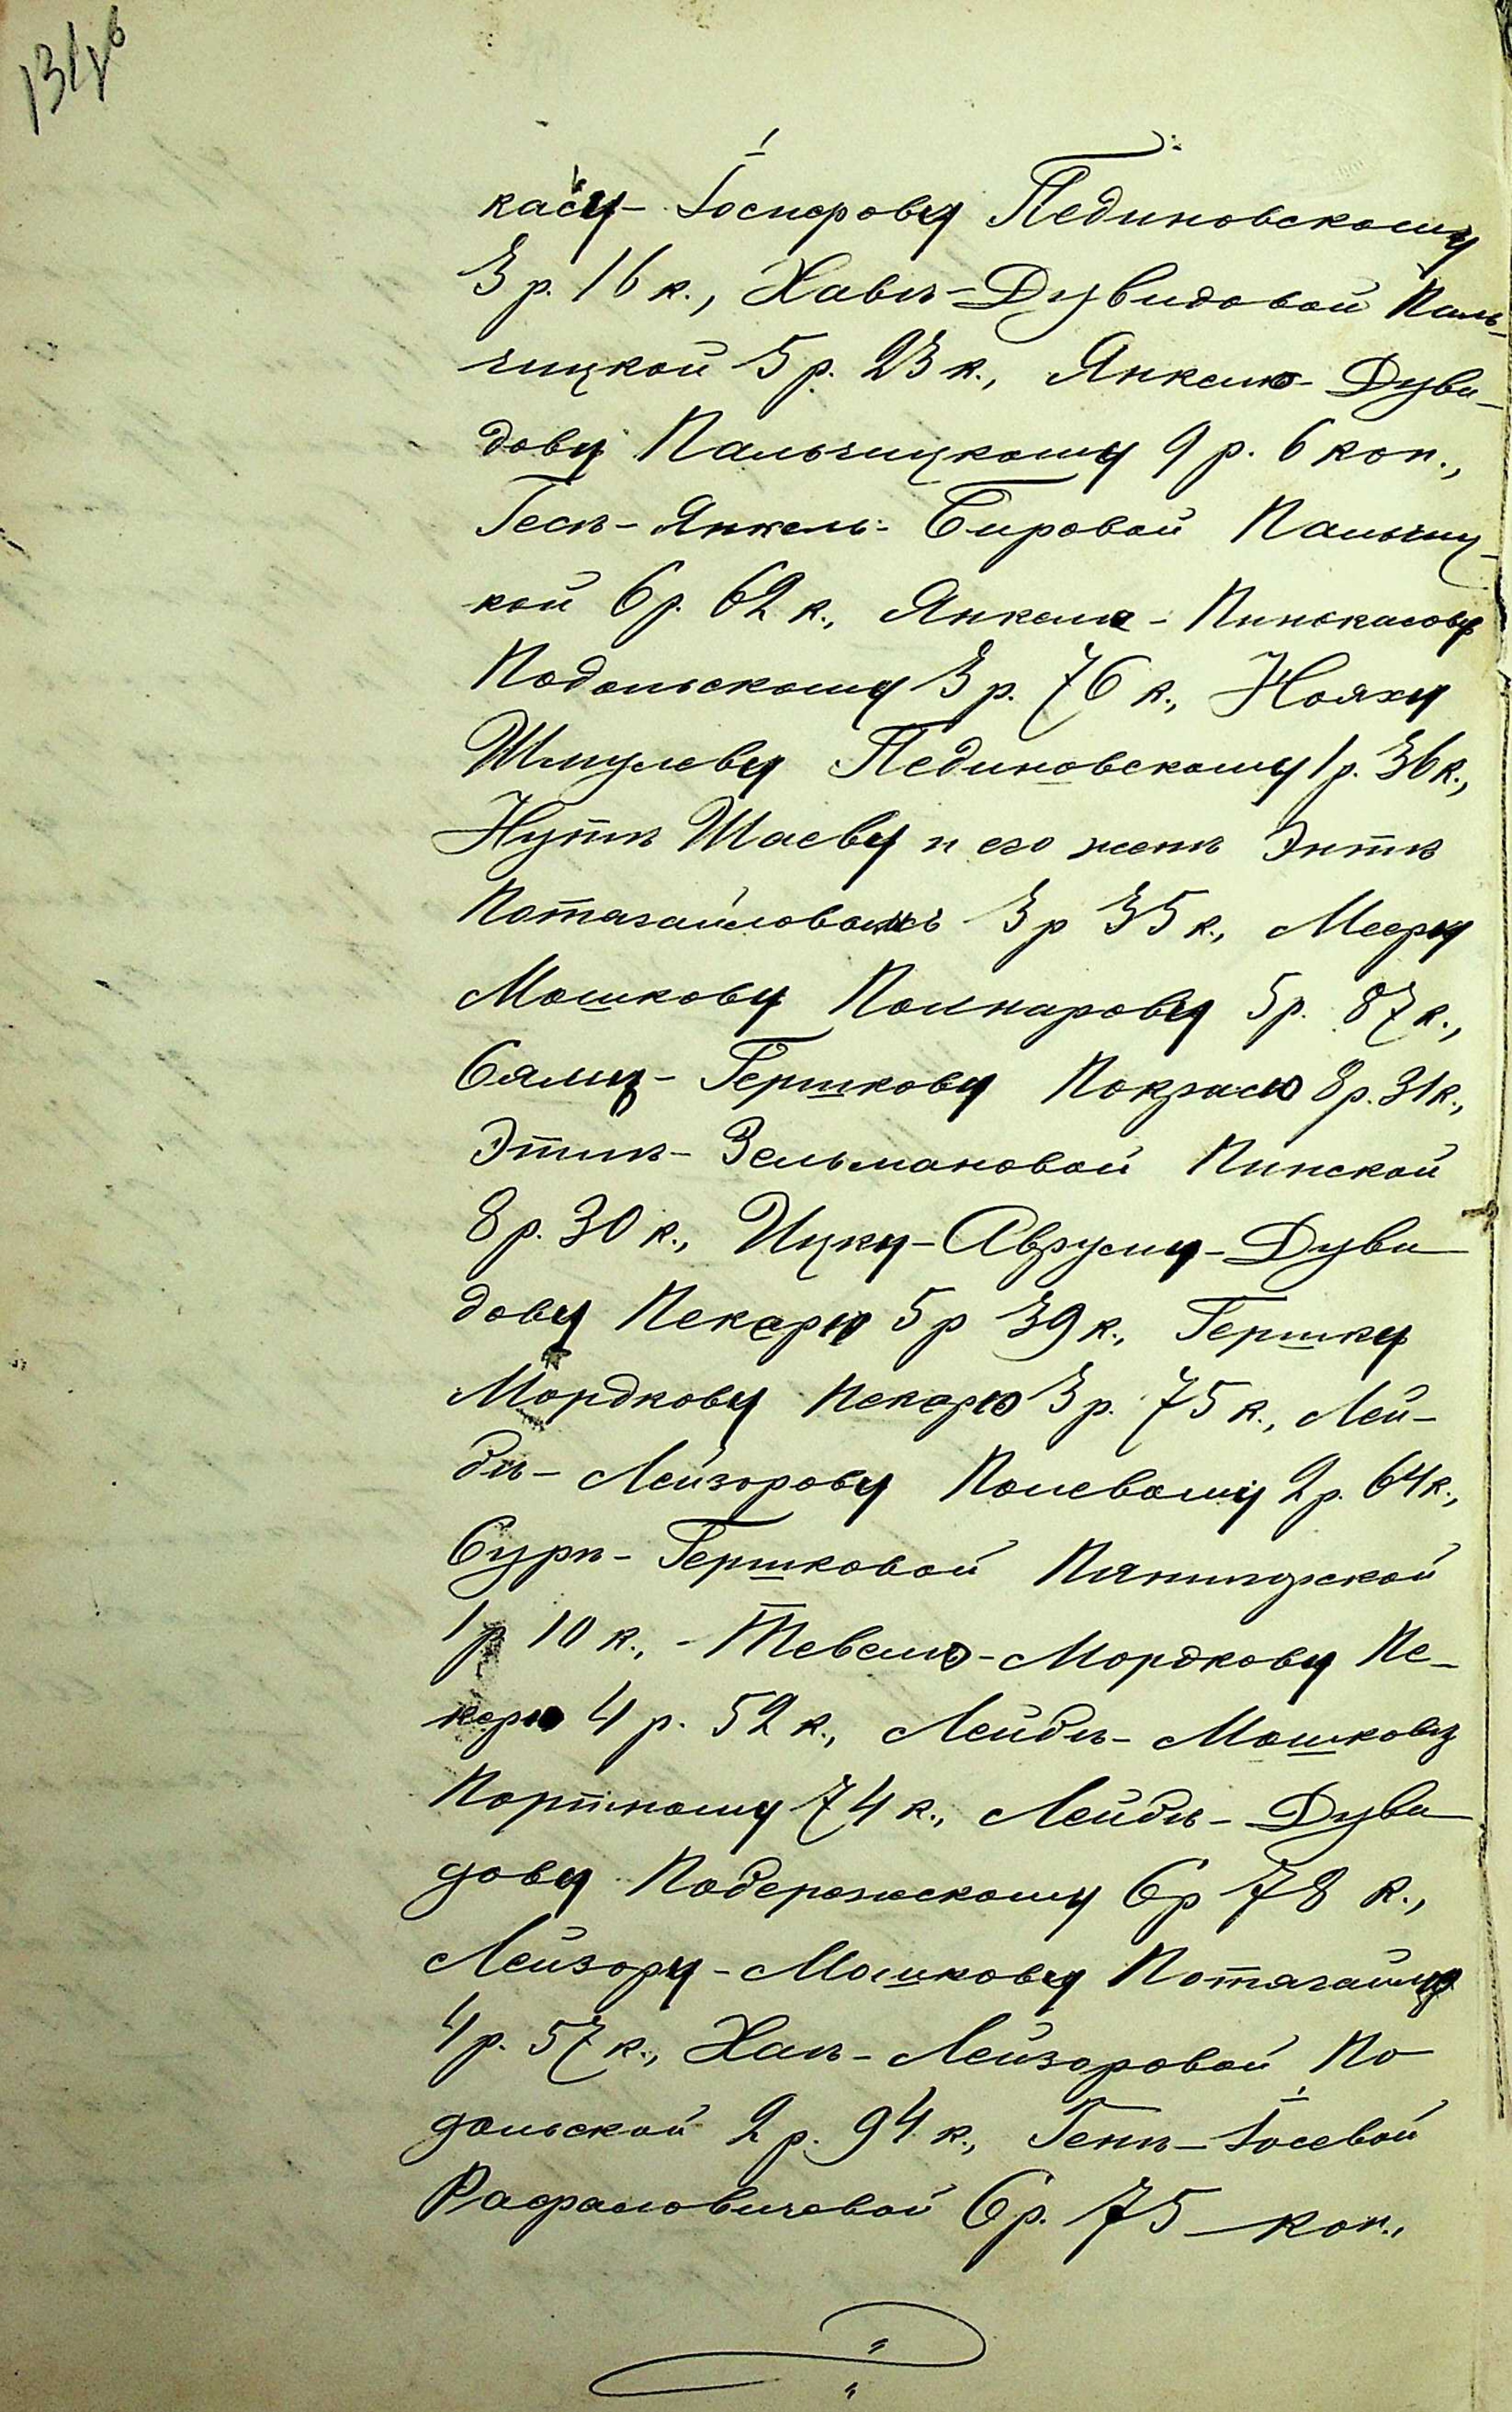 касу-Іосперову Пединовскому
3 р. 16 к., Хавѣ-Дувидовой Паль-
чицкой 5 р. 23 к., Янкелю-Дуви-
дову Пальчицкому 9 р. 6 коп.,
Гесѣ-Янкель-Бировой Пальчиц-
кой 6 р. 62 к., Янкелю-Пинькасову
Подольскому 3 р. 76 к., Нояху
Шмулеву Пединовскому 1 р. 36 к.,
Нутѣ Шаеву и его женѣ Энтѣ
3 р 35 к., Мееру
Мошкову 5 р. 87 к.,
Сямц-Гершкову Покрасю 8 р. 31 к.,
Этлѣ-Зельмановой Пинской
8 р. 30 к., Ицку-Авруму-Дуви
дову Пекарю 5 р 39 к., Гершку
Мордкову Пекарю 3 р. 75 к., Лей-
бѣ-Лейзорову Полевому 2 р. 64 к.,
Сурѣ-Гершковой
1 р 10 к., Тевелю-Мордкову Пе-
карю 4 р. 52 к., Лейбѣ-Мошкову
Портному 74 к., Лейбѣ-Дуви
дову Подерожскому 6 р 78 к.,
Лейзору-Мошкову
4 р. 57 к., Ханѣ-Лейзоровой По
дольской 2 р. 94 к., Генѣ-Іосевой
Рафаловичевой 6 р. 75 коп.,